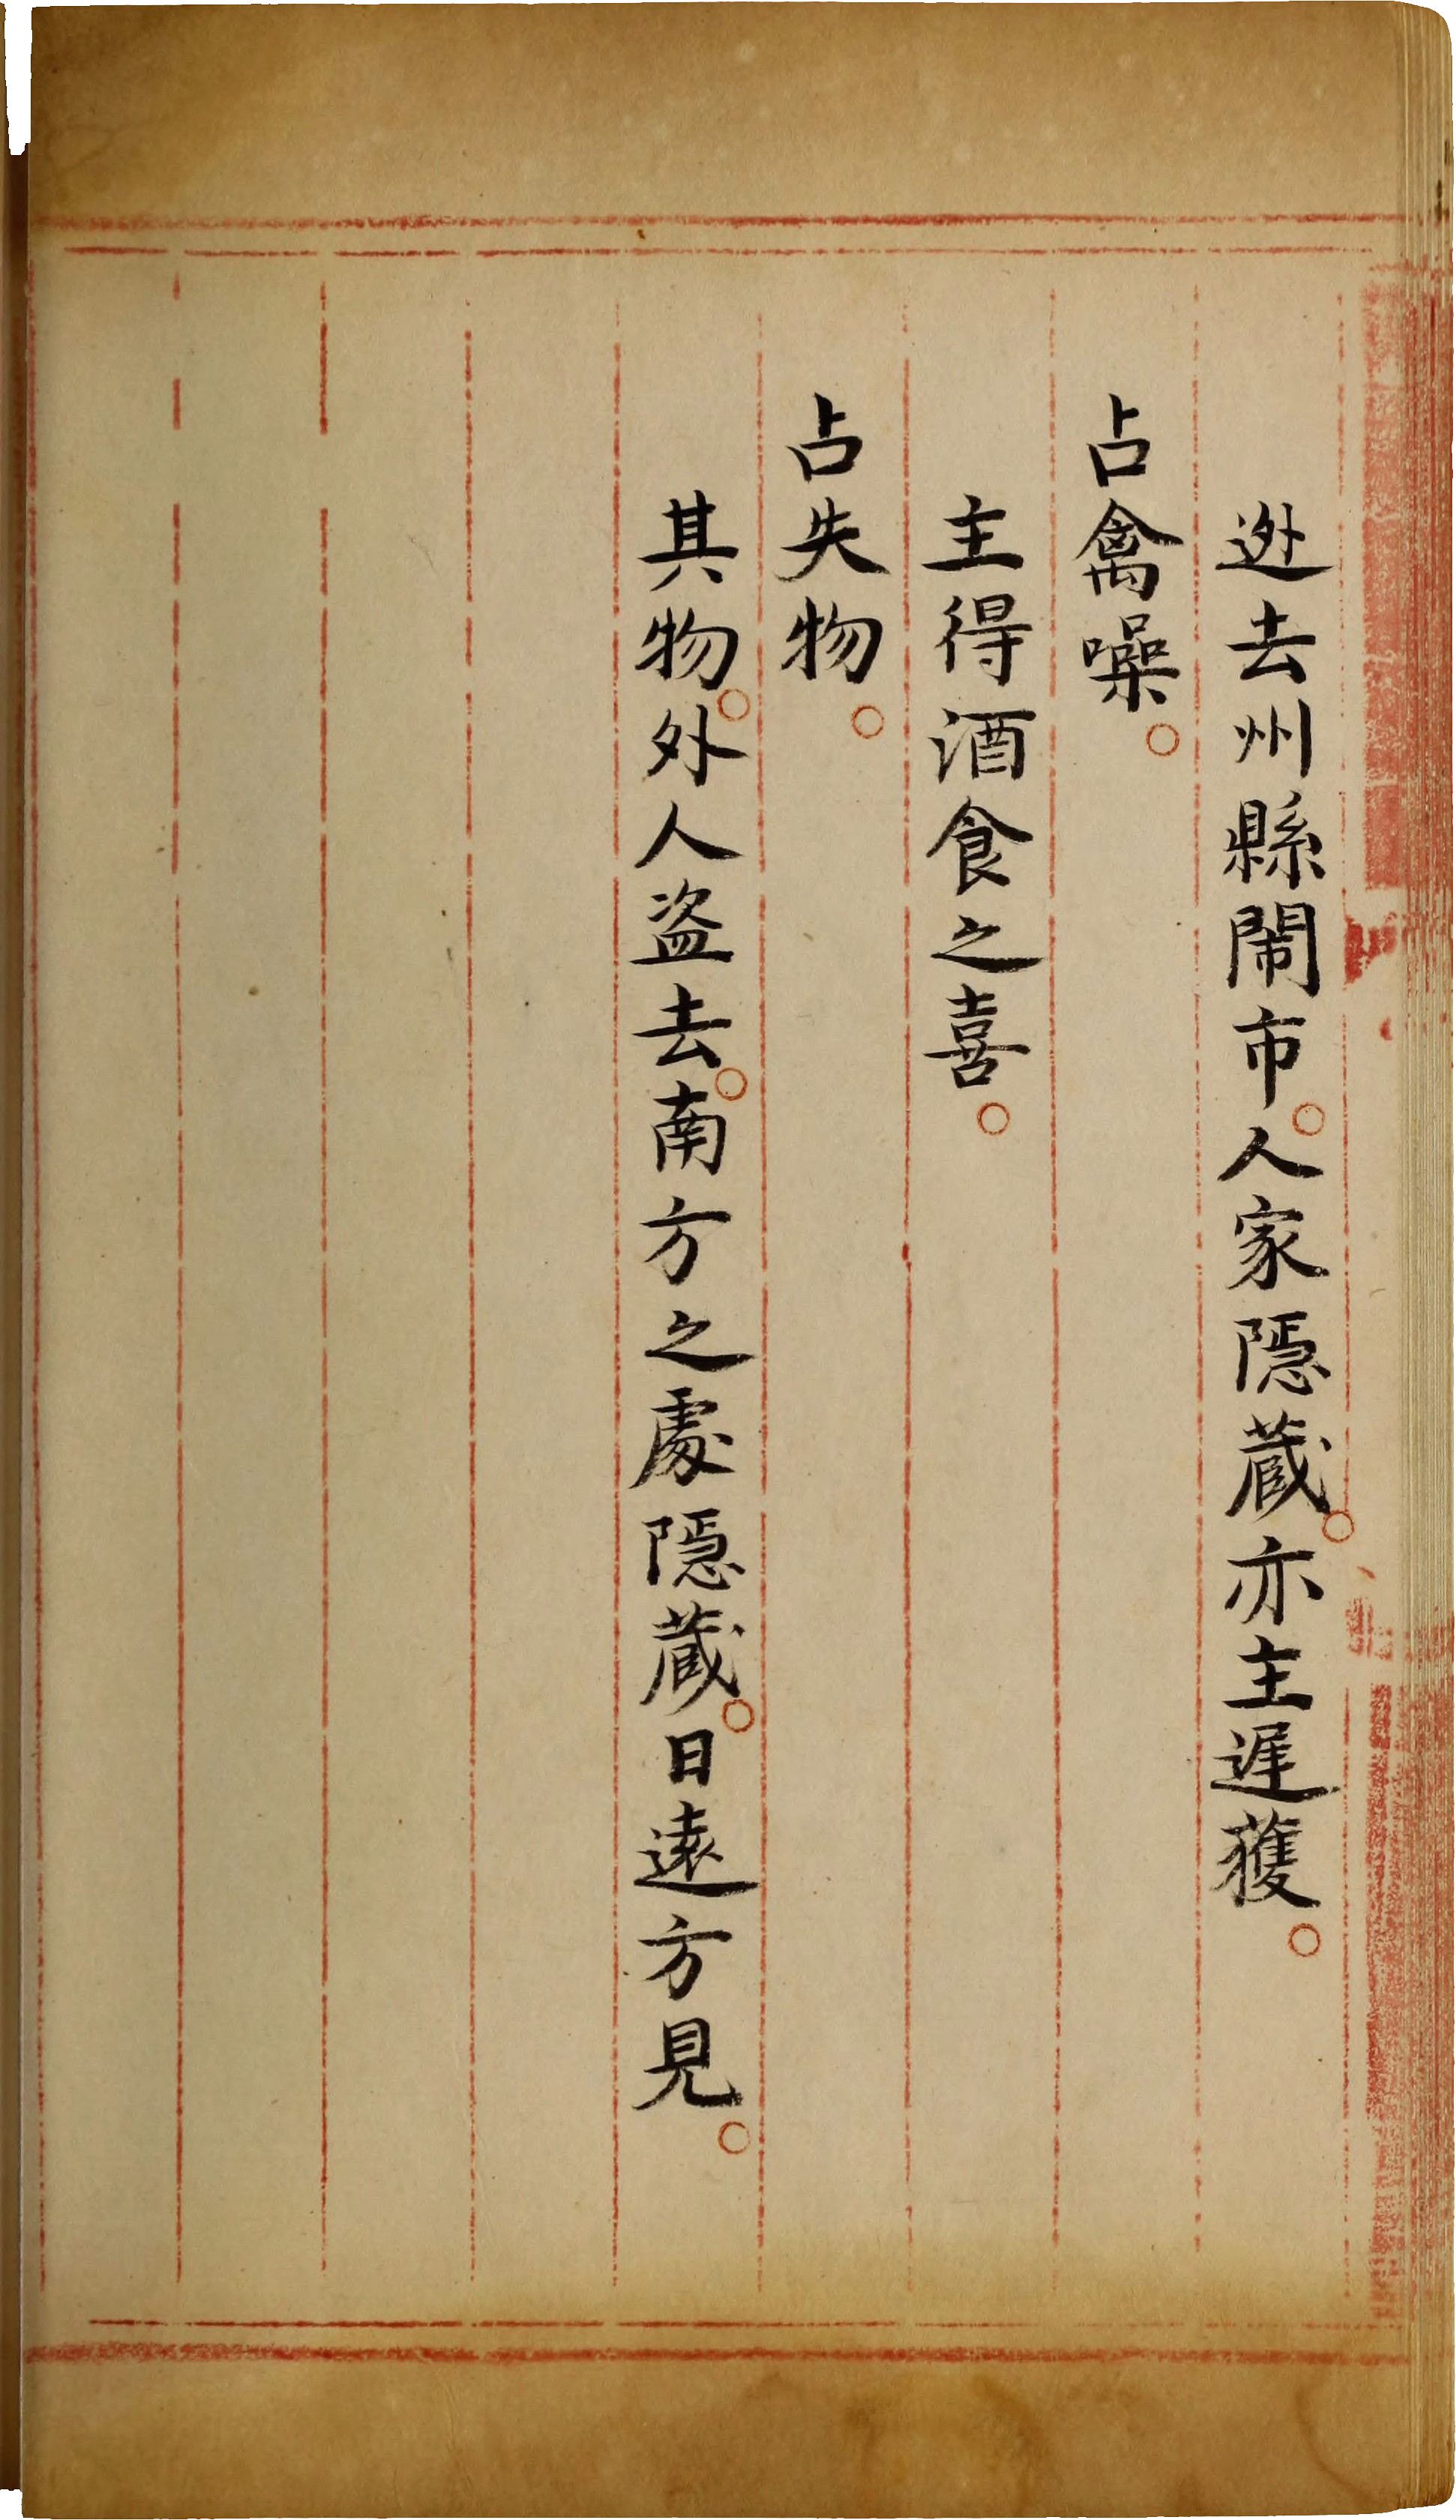 迯去州縣鬧市。人家隠蔵。亦主遅獲。
占禽噪。
主得酒食之喜。
占失物。
其物。外人盗去。南方之處隠蔵。日遠方見。